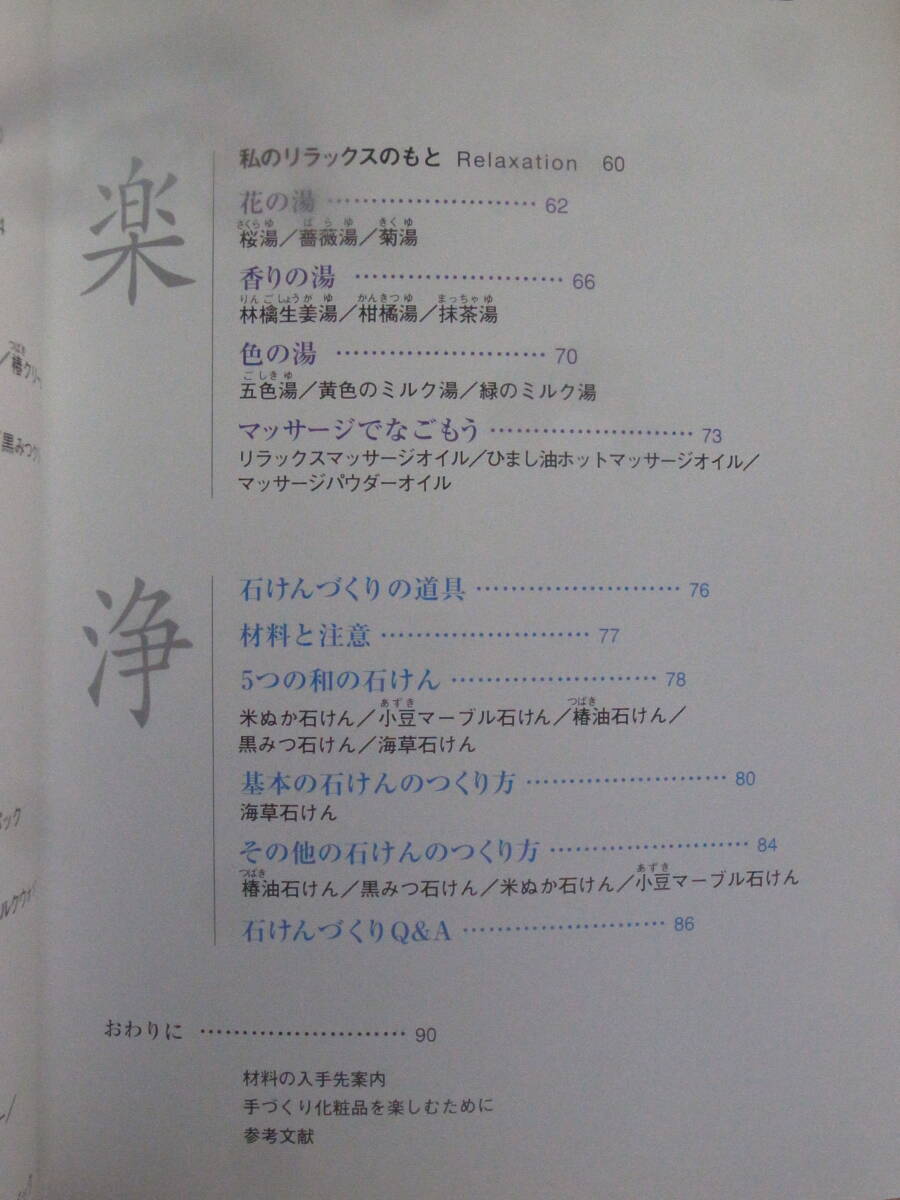 楽
私のリラックスのもと Relaxation 60
花の湯 …………………… 62
さくらゆ ばらゆ きくゆ
桜湯／薔薇湯／菊湯
香りの湯 …………………… 66
りんごしょうがゆ かんきつゆ まっちゃゆ
林檎生姜湯／柑橘湯／抹茶湯
色の湯 …………………… 70
ごしきゆ
五色湯／黄色のミルク湯／緑のミルク湯
マッサージでなごもう …………………… 73
リラックスマッサージオイル／ひまし油ホットマッサージオイル／
マッサージパウダーオイル
浄
石けんづくりの道具 …………………… 76
材料と注意 …………………… 77
5つの和の石けん …………………… 78
あずき つばき
米ぬか石けん／小豆マーブル石けん／椿油石けん／
黒みつ石けん／海草石けん
基本の石けんのつくり方 …………………… 80
海草石けん
その他の石けんのつくり方 …………………… 84
つばき あずき
椿油石けん／黒みつ石けん／米ぬか石けん／小豆マーブル石けん
石けんづくりQ&A …………………… 86
おわりに …………………… 90
材料の入手先案内
手づくり化粧品を楽しむために
参考文献
つばき
／椿クリー
黒みつク
パック
ルクウォ